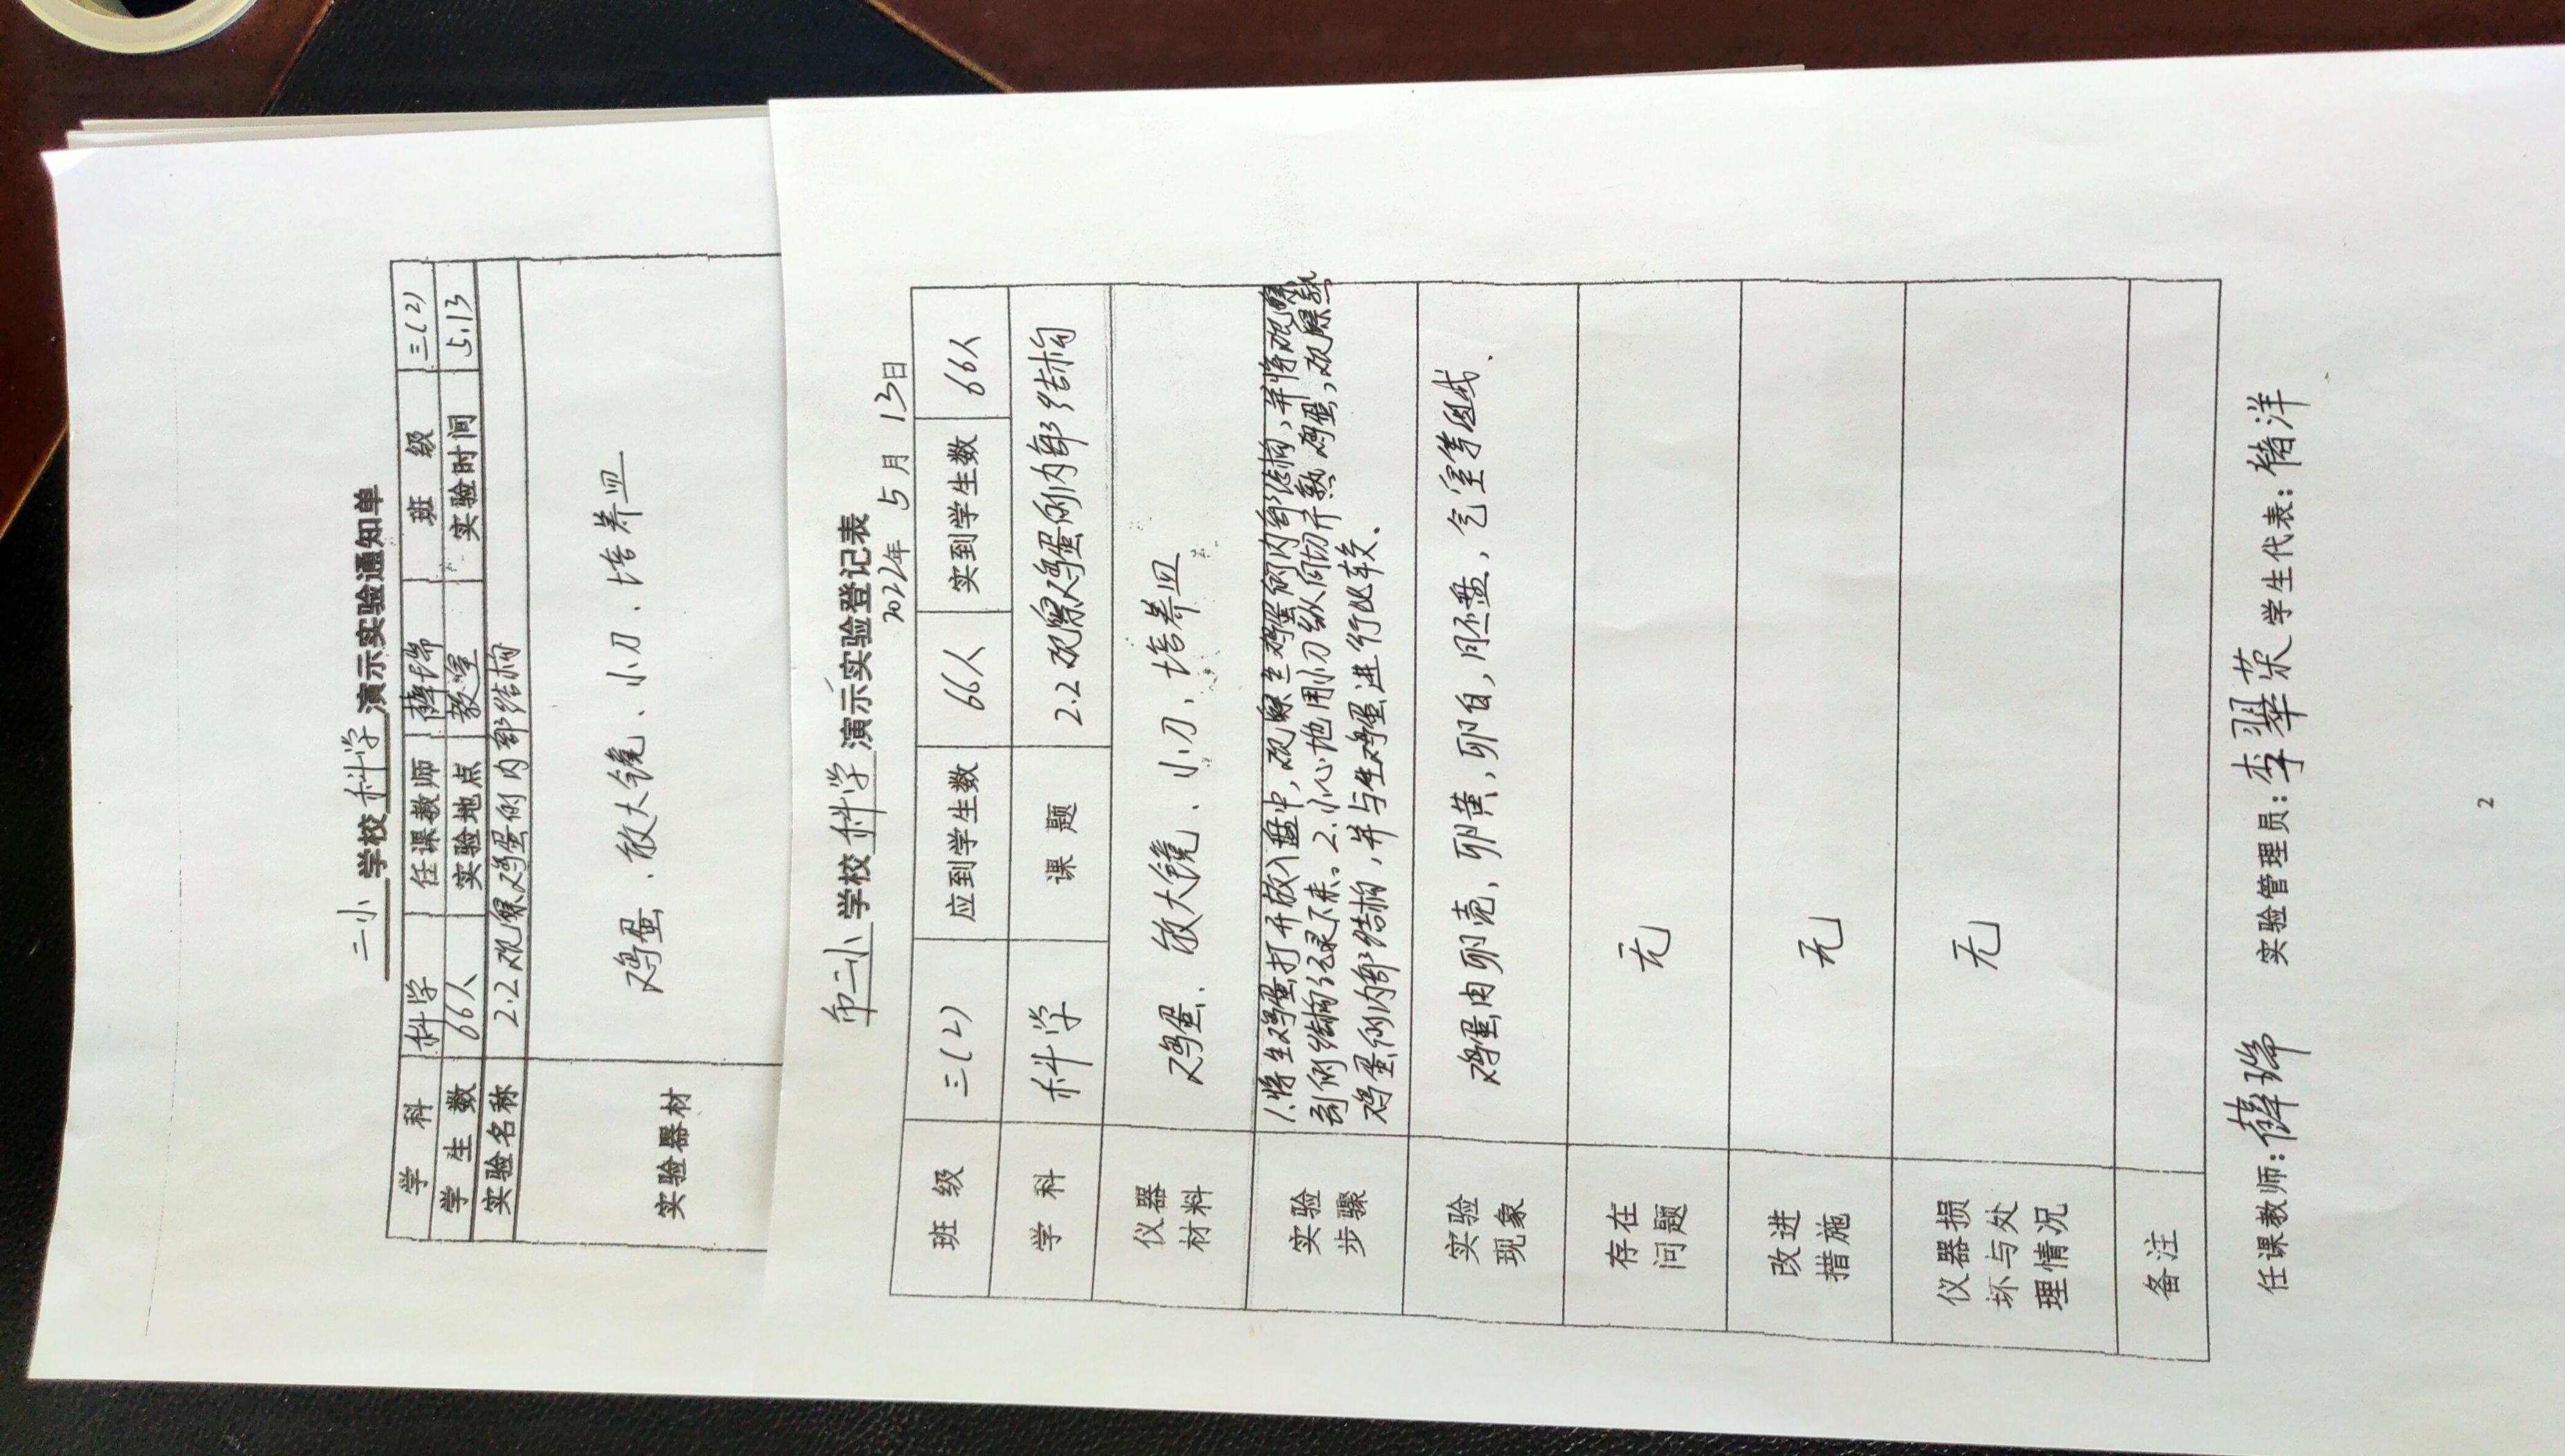 二小 学校 科学 演示实验通知单
学 科 科学 任课教师 薛瑞 班 级 三(2)
学 生 数 66人 实验地点 教室 实验时间 5.13
实验名称 2.2观察鸡蛋的内部结构
实验器材 鸡蛋、放大镜、小刀、培养皿
市二小 学校 科学 演示实验登记表
2022年 5 月 13日
班 级 三(2) 应到学生数 66人 实到学生数 66人
学 科 科学 课 题 2.2观察鸡蛋的内部结构
仪器
材料
鸡蛋、放大镜、小刀、培养皿
实验
步骤
1.将生鸡蛋打开放入盘中,观察生鸡蛋的内部结构,并将观察
到的结构记录下来。2.小心地用小刀纵向切开熟鸡蛋,观察熟
鸡蛋的内部结构,并与生鸡蛋进行比较、
实验
现象
鸡蛋由卵壳,卵黄,卵白,胚盘,气室等组成、
存在
问题
无
改进
措施
无
仪器损
坏与处
理情况
无
备注
任课教师:薛瑞 实验管理员:李翠荣 学生代表:储洋
2